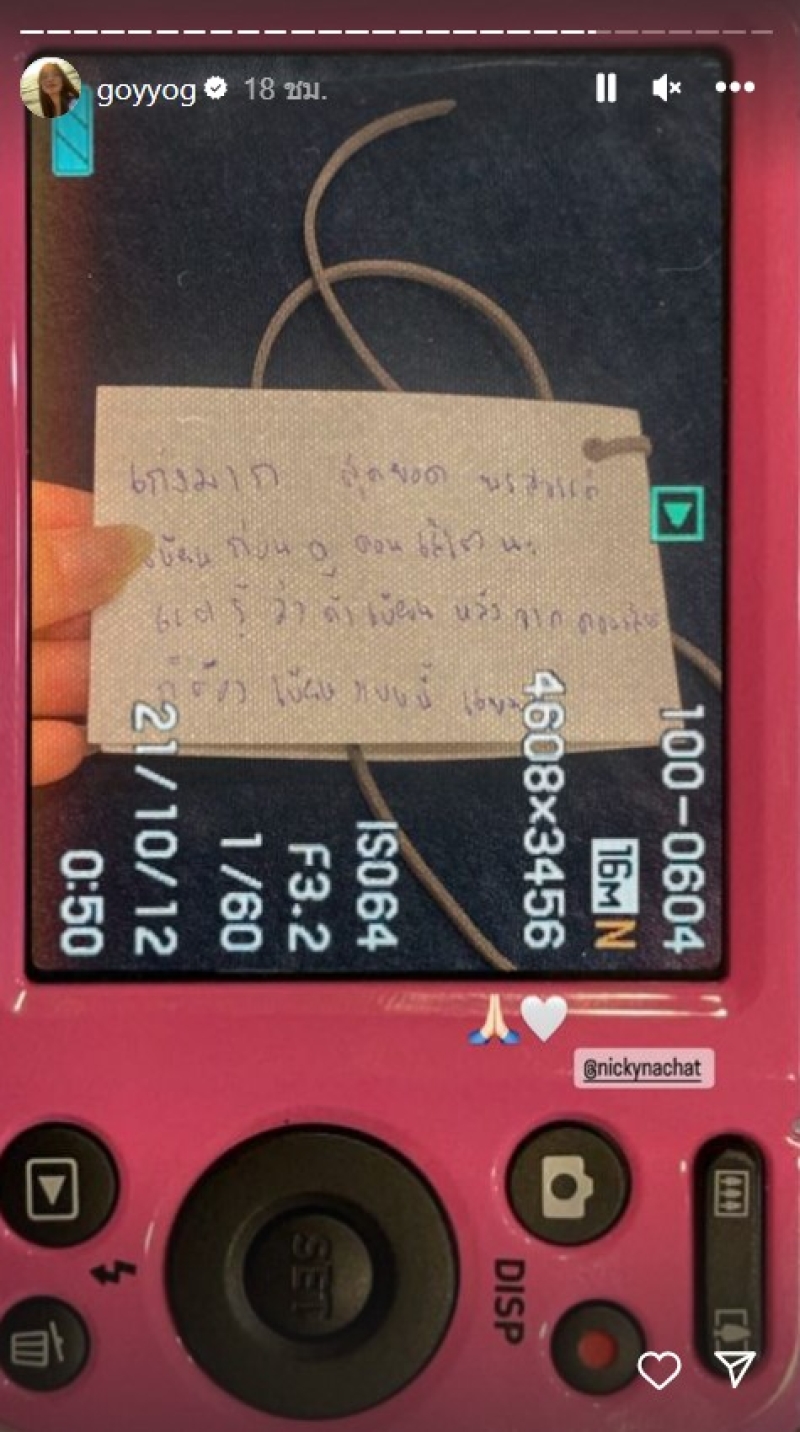 goyyog 18 ชม.
เก่งมาก สุดยอด พรสวรรค์
เขียน ก่อน ดู คอนเสิร์ต นะ
แต่ รู้ ว่า ถ้า เขียน หลัง จาก คอนเสิร์ต
ก็ ต้อง เขียน แบบนี้
100-0604
16M N
4608×3456
ISO64
F3.2
1/60
21/10/12
0:50
@nickynachat
SET
DISP